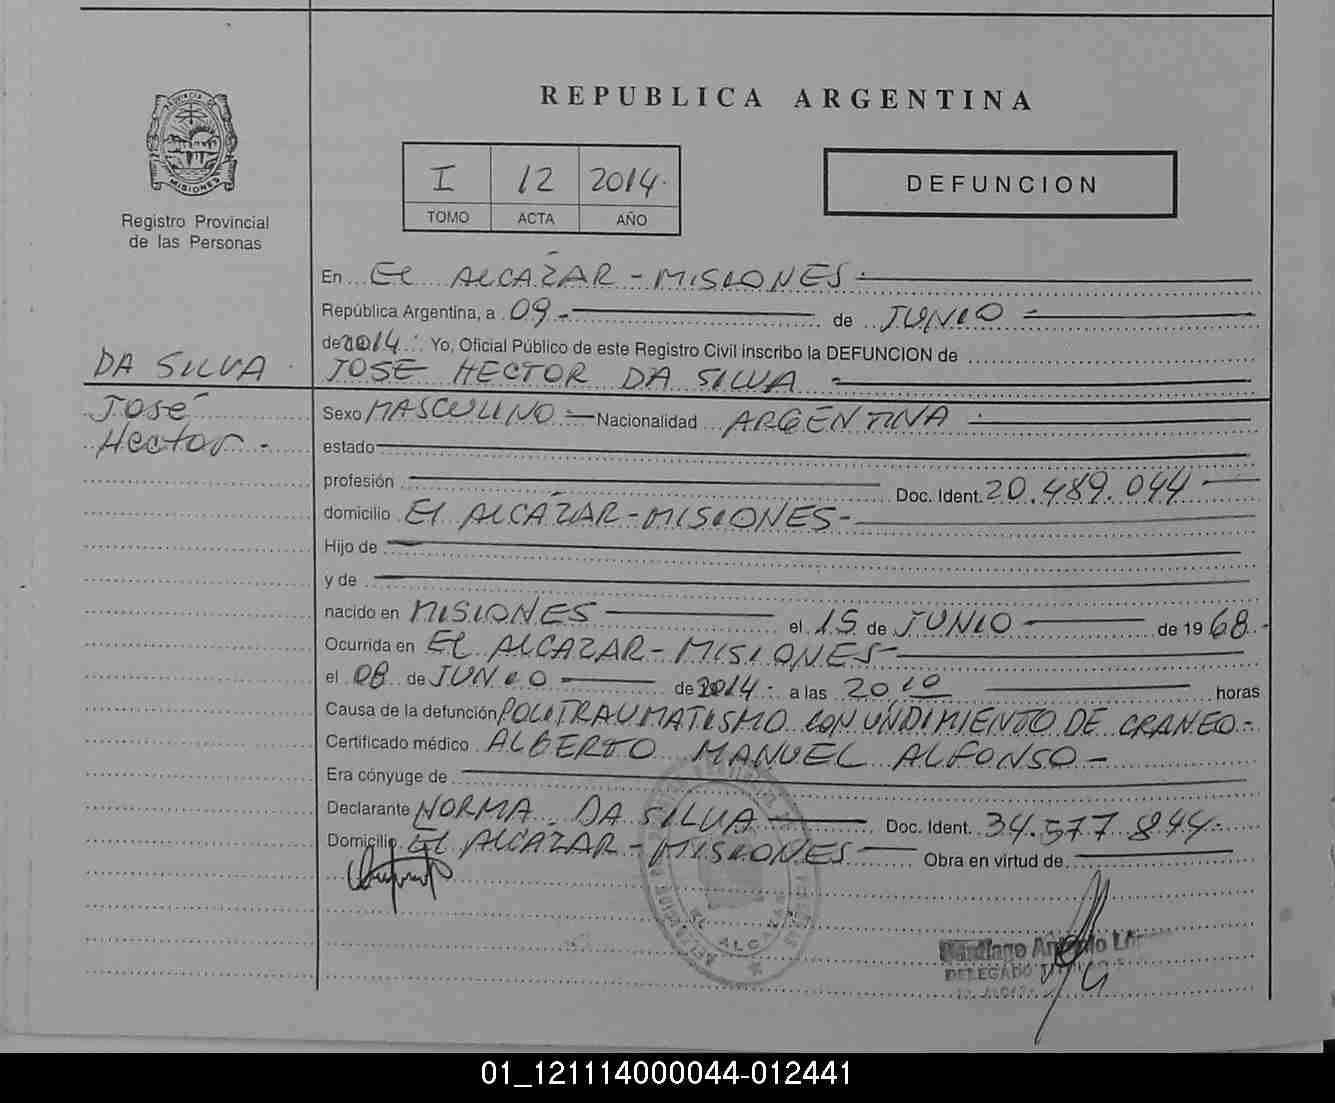 REPUBLICA ARGENTINA
PROVINCIA DE
MISIONES
Registro Provincial
de las Personas
I 12 2014
TOMO ACTA AÑO
DEFUNCION
En El ALCAZAR - MISIONES
República Argentina, a 09 de JUNIO
de 2014 Yo, Oficial Público de este Registro Civil inscribo la DEFUNCION de
DA SILVA
JOSE HECTOR DA SILVA
José
Hector
Sexo MASCULINO Nacionalidad ARGENTINA
estado
profesión Doc. Ident. 20.489.044
domicilio El ALCAZAR - MISIONES
Hijo de
y de
nacido en MISIONES el 15 de JUNIO de 1968
Ocurrida en EL ALCAZAR - MISIONES
el 08 de JUNIO de 2014 a las 20 10 horas
Causa de la defunción POLITRAUMATISMO CON UNDIMIENTO DE CRANEO
Certificado médico ALBERTO MANUEL ALFONSO
Era cónyuge de
Declarante NORMA DA SILVA Doc. Ident. 34.577.844
Domicilio El ALCAZAR - MISIONES Obra en virtud de
EL ALCAZAR
Santiago Antonio
DELEGADO TITULAR
01_121114000044-012441